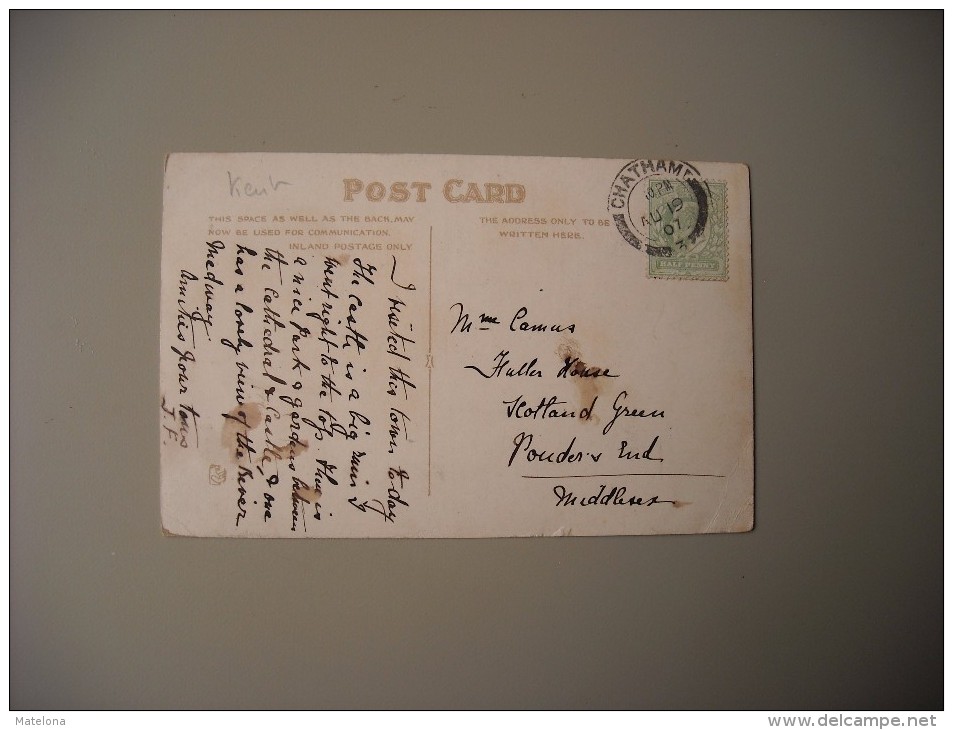 Kent
POST CARD
THIS SPACE AS WELL AS THE BACK, MAY
NOW BE USED FOR COMMUNICATION.
INLAND POSTAGE ONLY
THE ADDRESS ONLY TO BE
WRITTEN HERE.
CHATHAM
10. PM
AU 19
07
HALF PENNY
I visited this town to day
The castle is a big ruin I
went right to the top. There is
a nice park & gardens between
the Cathedral & Castle, & one
has a lovely view of the River
Medway.
Amitiés pour tous
J. F.
Mme Camus
Fuller House
Scotland Green
Ponder's End
Middlesex
Matelona
www.delcampe.net